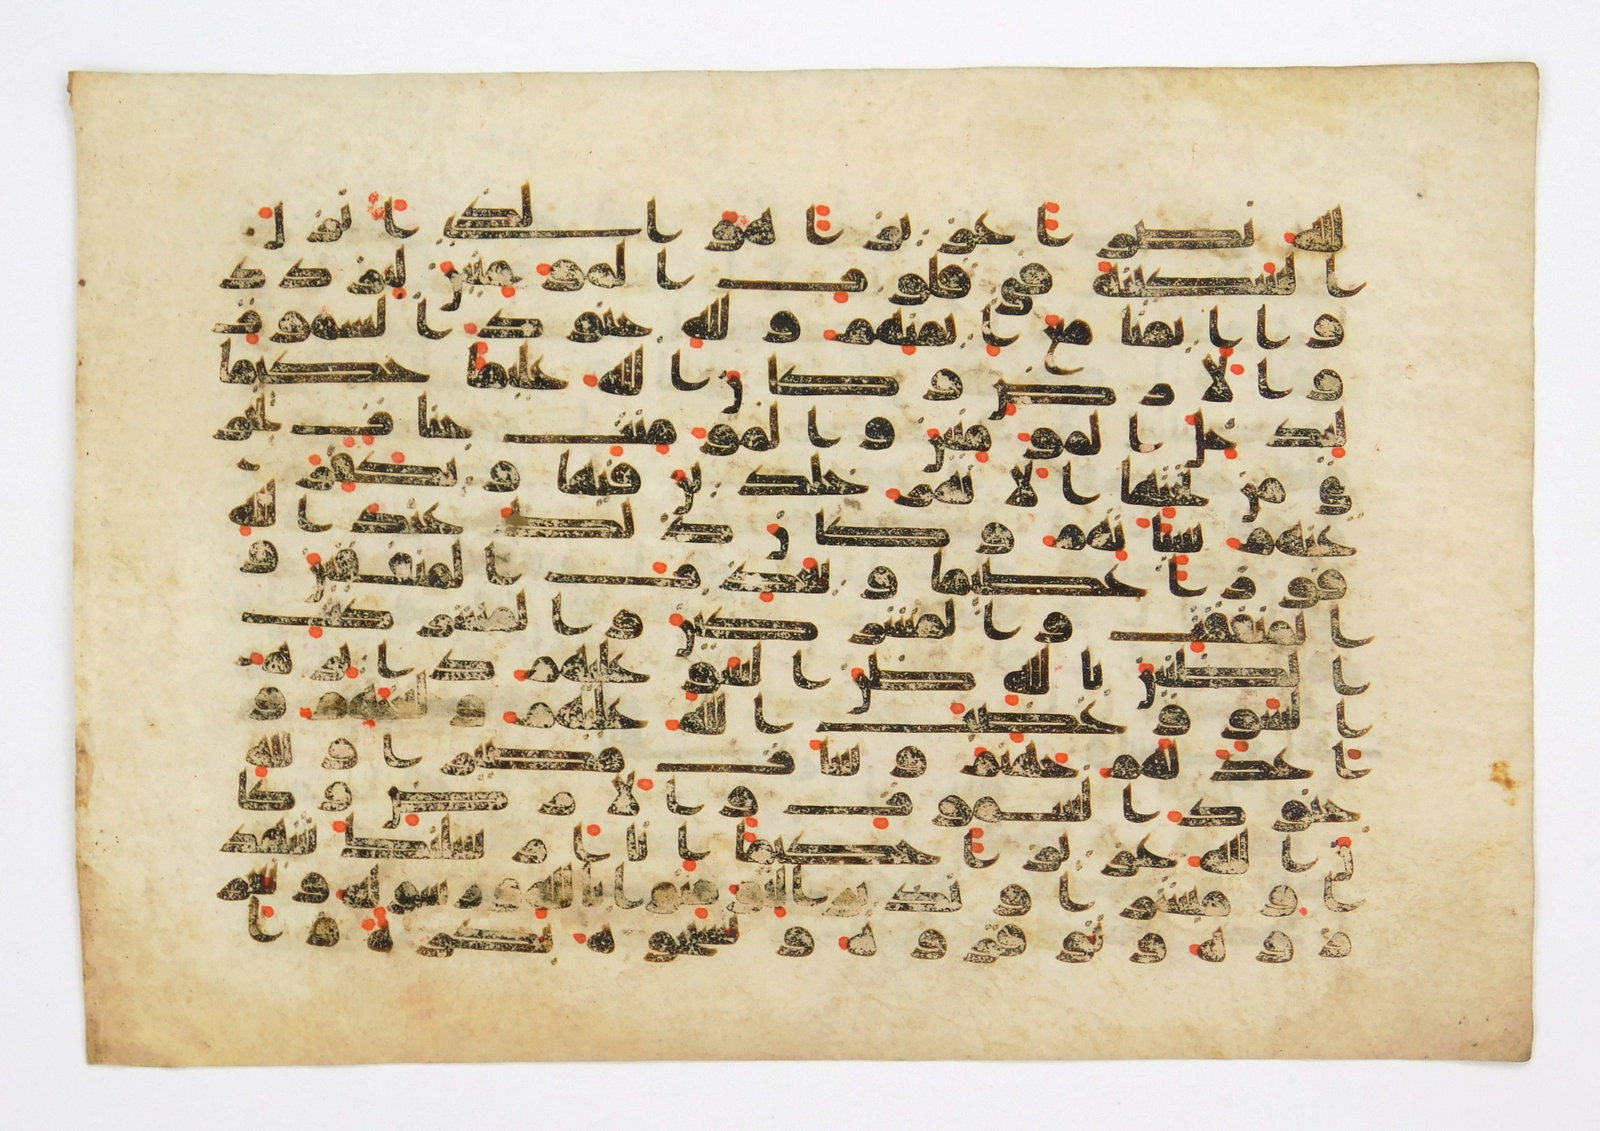 لله نصرا عزيزا هو الذي انزل
السكينة في قلوب المومنين ليزدد
وا ايمنا مع ايمنهم ولله جنود السموت
والارض وكان الله عليما حكيما
ليدخل المومنين والمومنت جنت تجر
ي من تحتها الانهر خلدين فيها ويكفر
عنهم سياتهم وكان ذلك عند الله
فوزا عظيما ويعذب المنفقين و
المنفقت والمشركين والمشركت
الظنين بالله ظن السو عليهم دايره
السو وغضب الله عليهم ولعنهم و
اعد لهم جهنم وسات مصيرا ولله
جنود السموت والارض وكا
ن الله عزيزا حكيما انا ارسلنك شهد
ا ومبشرا ونذيرا لتومنوا بالله ورسوله وتعز
روه وتوقروه وتسبحوه بكره وا